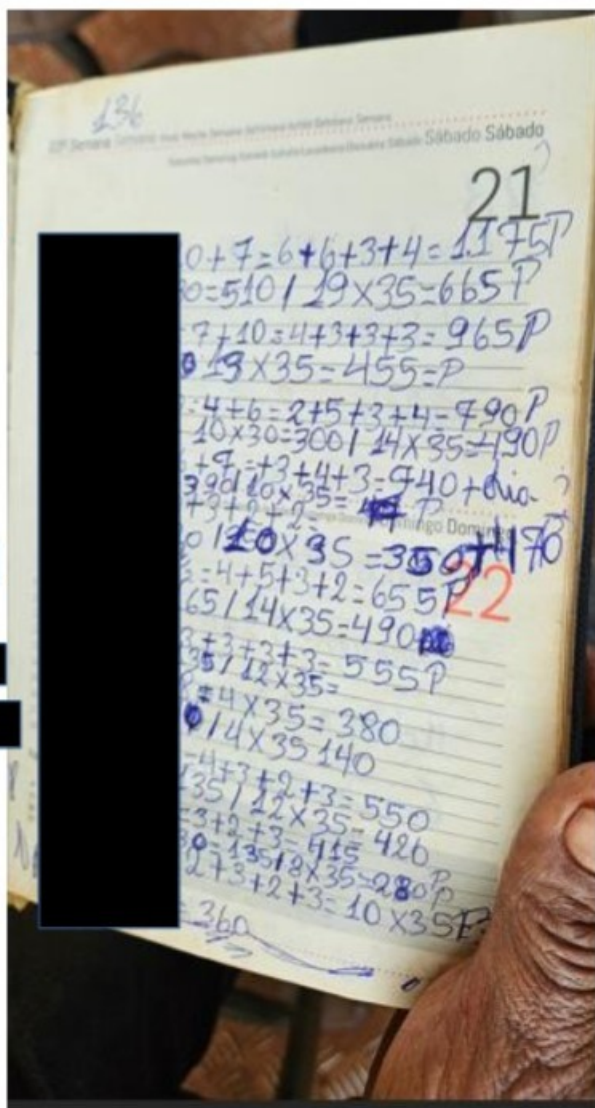 136
Sábado Sábado
21
0+7=6+6+3+4=1.175P
0=510/19×35=665P
+7+10=4+3+3+3=965P
19×35=455=P
=4+6=2+5+3+4=790P
10×30=300/14×35=490P
+9=+3+4+3=940+dia
390/10×35=
+3+2+2=
Domingo
0/10×35=350+170
22
=4+5+3+2=655P
65/14×35=490
3+3+3+3=555P
135/12×35=
8=4×35=380
0/4×35 140
-4+3+2+3=550
135/12×35=420
3+2+3=415
30=135/8×35=280P
2+3+2+3=10×35P
=360